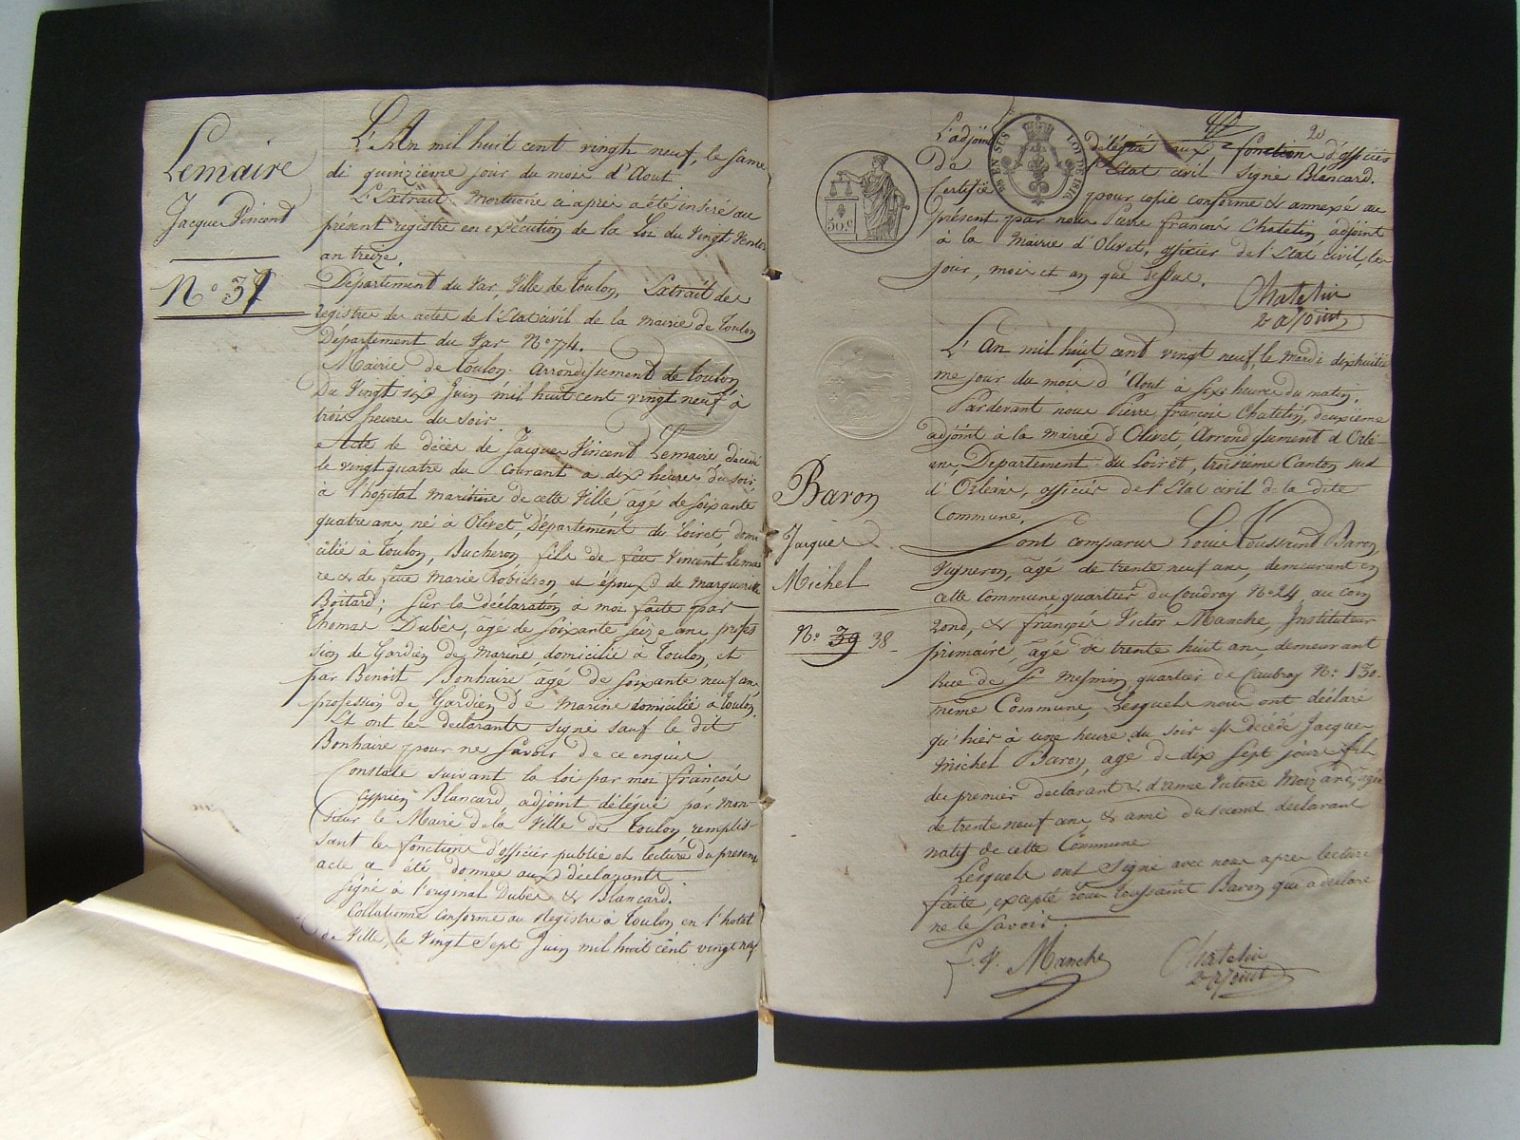 Lemaire
Jacques Vincent
N° 37
L'An mil huit cent vingt neuf, le same
di quinzième jour du mois d'Aout
L'Extrait mortuaire ci après a été inséré au
présent registre en exécution de la Loi du Vingt Ventose
an treize.
Département du Var, Ville de Toulon. Extrait des
registres des actes de l'Etat civil de la Mairie de Toulon
Département du Var N° 774.
Mairie de Toulon. Arrondissement de Toulon
Du Vingt six Juin mil huit cent vingt neuf à
trois heures du soir
Acte de décès de Jacques Vincent Lemaire décédé
le vingt quatre du Courant a dix heures du soir
à l'hopital maritime de cette Ville, agé de soixante
quatre ans, né à Olivet, Département du Loiret, domi
cilié à Toulon, Bucheron, fils de feu Vincent Lemai
re & de feue Marie Robichon et époux de Marguerite
Boitard; Sur la déclaration à moi faite par
Thomas Dubès, agé de soixante seize ans, profes
sion de Gardien de Marine, domicilié à Toulon, et
par Benoit Bonhaire agé de soixante neuf ans
profession de Gardien de Marine domicilié à Toulon.
Et ont les declarants signé sauf le dit
Bonhaire pour ne savoir de ce enquis
Constaté suivant la loi par moi françois
Cyprien Blancard, adjoint délégué par Mon-
sieur le Maire de la Ville de Toulon, remplis-
sant les fonctions d'officier public et lecture du present
acte a été donnée aux déclarants
signé à l'original Dubès & Blancard.
Collationné Conforme au Registre à Toulon, en l'hotel
de Ville, le Vingt Sept Juin mil huit cent vingt neuf
L'adjoint délégué aux fonctions d'officier
de l'Etat civil signé Blancard.
Certifié pour copie conforme & annexé au
présent par nous Pierre françois Chatelin adjoint
à la Mairie d'Olivet, officier de l'Etat civil, les
jour, mois et an que dessus.
Chatelin
2e adjoint
50.c
EN SUS
LOI DE 1816
Baron
Jacques
Michel
N° 39 38
L'An mil huit cent vingt neuf, le mardi dix huitiè
me jour du mois d'Aout à six heures du matin.
Pardevant nous Pierre françois Chatelin, deuxieme
adjoint à la Mairie d'Olivet, Arrondissement d'Orlé-
ans, Departement du Loiret, troisième Canton sud
d'Orléans, officier de l'Etat civil de la dite
Commune,
Sont comparus Louis Toussaint Baron
Vigneron, agé de trente neuf ans, demeurant en
cette Commune quartier du Coudray N° 24 au
&amp; françois Victor Manche, Instituteur
primaire, agé de trente huit ans, demeurant
Rue de St Mesmin quartier de Caubray N° 130.
même Commune, Lesquels nous ont déclaré
qu'hier à une heure du soir est décédé Jacques
Michel Baron, agé de dix sept jours, fils
du premier declarant & dame Victoire Moizard, agée
de trente neuf ans & ami du second declarant
natif de cette Commune
Lesquels ont signé avec nous apres lecture
faite, excepté Louis Toussaint Baron qui a declaré
ne le savoir.
F. V. Manche
Chatelin
2e adjoint